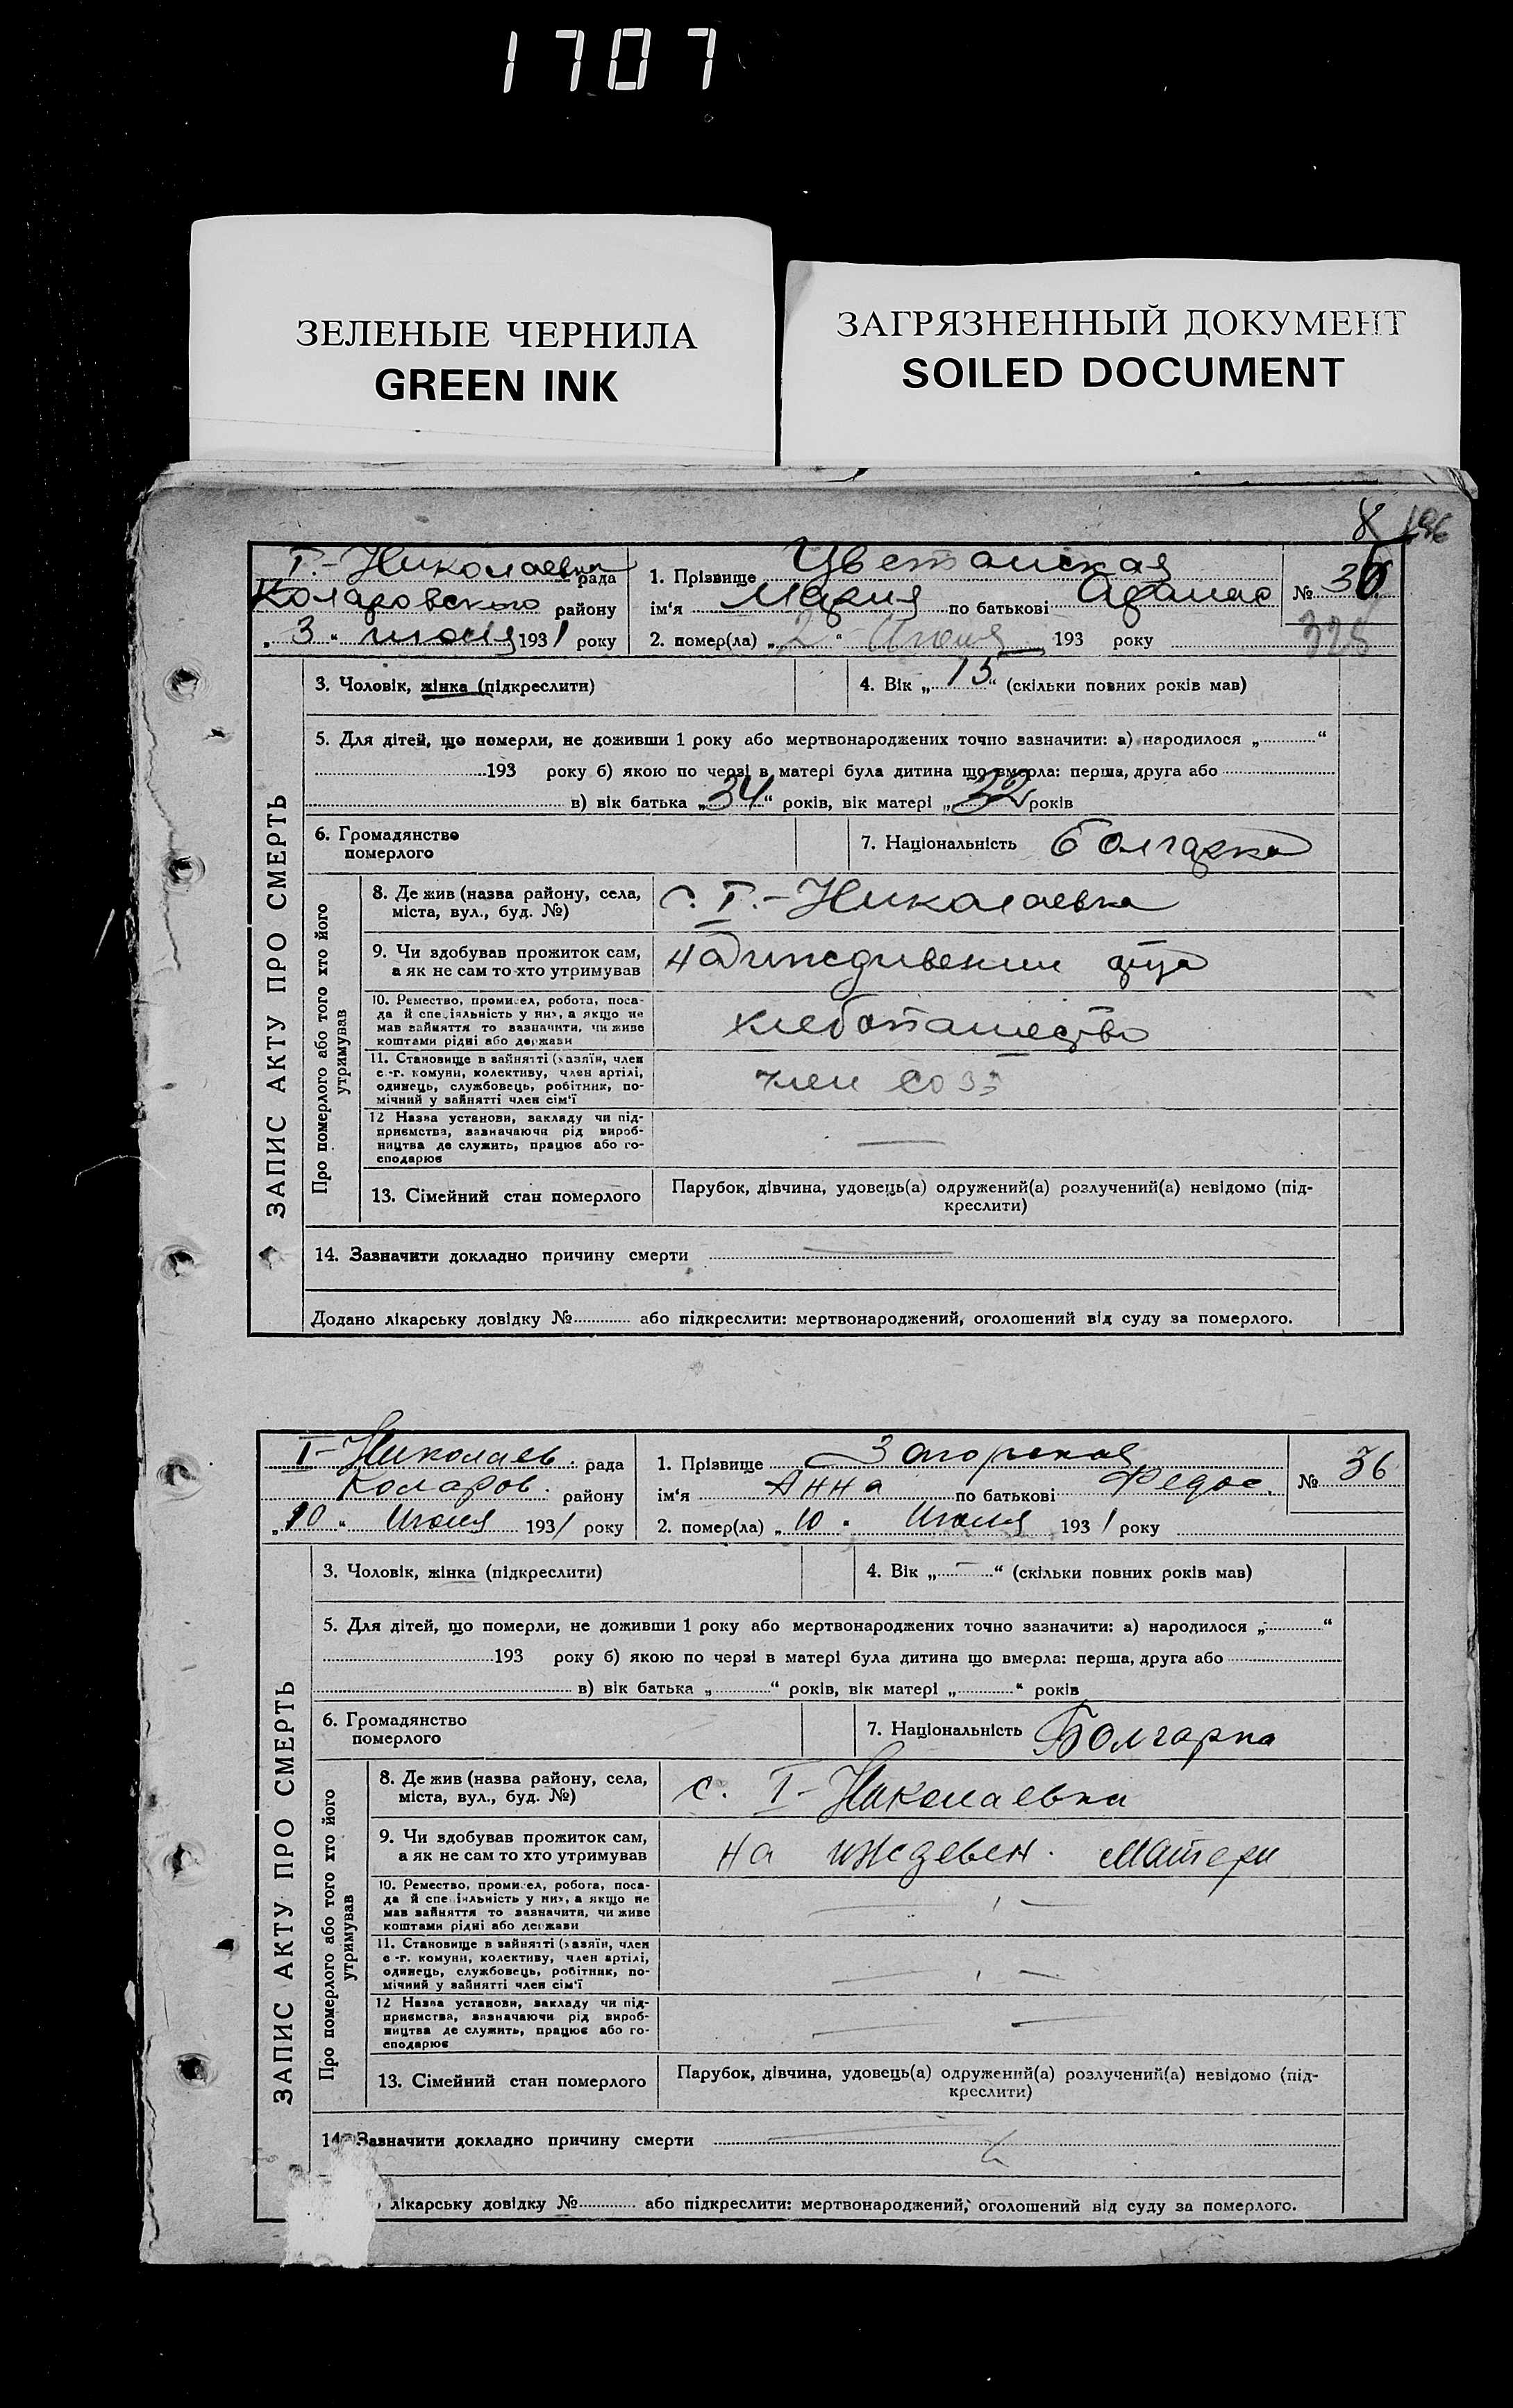 1707
ЗЕЛЕНЫЕ ЧЕРНИЛА
GREEN INK
ЗАГРЯЗНЕННЫЙ ДОКУМЕНТ
SOILED DOCUMENT
8 196
ЗАПИС АКТУ ПРО СМЕРТЬ
I.-Николаевка рада
Коларовського району
„3“ июля 1931 року
1. Прізвище Цветанская
ім‘я Мария по батькові Афанас
№ 36
2. помер(ла) „2“ Июля 193 року
325
3. Чоловік, жінка (підкреслити)
4. Вік „15“ (скільки повних років мав)
5. Для дітей, що померли, не доживши 1 року або мертвонароджених точно зазначити: а) народилося „ “
193 року б) якою по черзі в матері була дитина що вмерла: перша, друга або
в) вік батька „34“ років, вік матері „32 років
6. Громадянство
померлого
7. Національність болгарка
Про померлого або того хто його
утримував
8. Де жив (назва району, села,
міста, вул., буд. №)
с. I.-Николаевка
9. Чи здобував прожиток сам,
а як не сам то хто утримував
10. Ремество, промисел, робота, поса-
да й спеціяльність у них, а якщо не
мав зайняття то зазначити, чи живе
коштами рідні або держави
хлебопашество
11. Становище в зайнятті (хазяїн, член
с.-г. комуни, колективу, член артілі,
одинець, службовець, робітник, по-
мічний у зайнятті член сім‘ї
член созз
12 Назва установи, закладу чи під-
приємства, зазначаючи рід вироб-
ництва де служить, працює або го-
сподарює
—
13. Сімейний стан померлого
Парубок, дівчина, удовець(а) одружений(а) розлучений(а) невідомо (під-
креслити)
14. Зазначити докладно причину смерти —
Додано лікарську довідку № або підкреслити: мертвонароджений, оголошений від суду за померлого.
ЗАПИС АКТУ ПРО СМЕРТЬ
I-Николаев. рада
Коларов. району
„10“ Июля 1931 року
1. Прізвище Загорская
ім‘я Анна по батькові Федос.
№ 36
2. помер(ла) „10“ Июля 1931 року
3. Чоловік, жінка (підкреслити)
4. Вік „—“ (скільки повних років мав)
5. Для дітей, що померли, не доживши 1 року або мертвонароджених точно зазначити: а) народилося „ “
193 року б) якою по черзі в матері була дитина що вмерла: перша, друга або
в) вік батька „ “ років, вік матері „ “ років
6. Громадянство
померлого
7. Національність Болгарка
Про померлого або того хто його
утримував
8. Де жив (назва району, села,
міста, вул., буд. №)
с. I-Николаевка
9. Чи здобував прожиток сам,
а як не сам то хто утримував
на иждевен. матери
10. Ремество, промисел, робота, поса-
да й спеціяльність у них, а якщо не
мав зайняття то зазначити, чи живе
коштами рідні або держави
11. Становище в зайнятті (хазяїн, член
с.-г. комуни, колективу, член артілі,
одинець, службовець, робітник, по-
мічний у зайнятті член сім‘ї
12 Назва установи, закладу чи під-
приємства, зазначаючи рід вироб-
ництва де служить, працює або го-
сподарює
13. Сімейний стан померлого
Парубок, дівчина, удовець(а) одружений(а) розлучений(а) невідомо (під-
креслити)
14. Зазначити докладно причину смерти
лікарську довідку № або підкреслити: мертвонароджений, оголошений від суду за померлого.